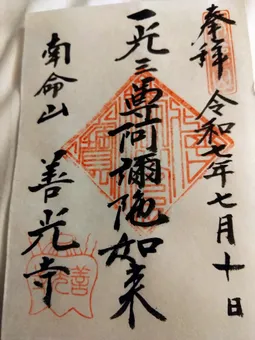 奉拝
令和七年七月十日
一光三尊阿彌陀如来
南命山
善光寺